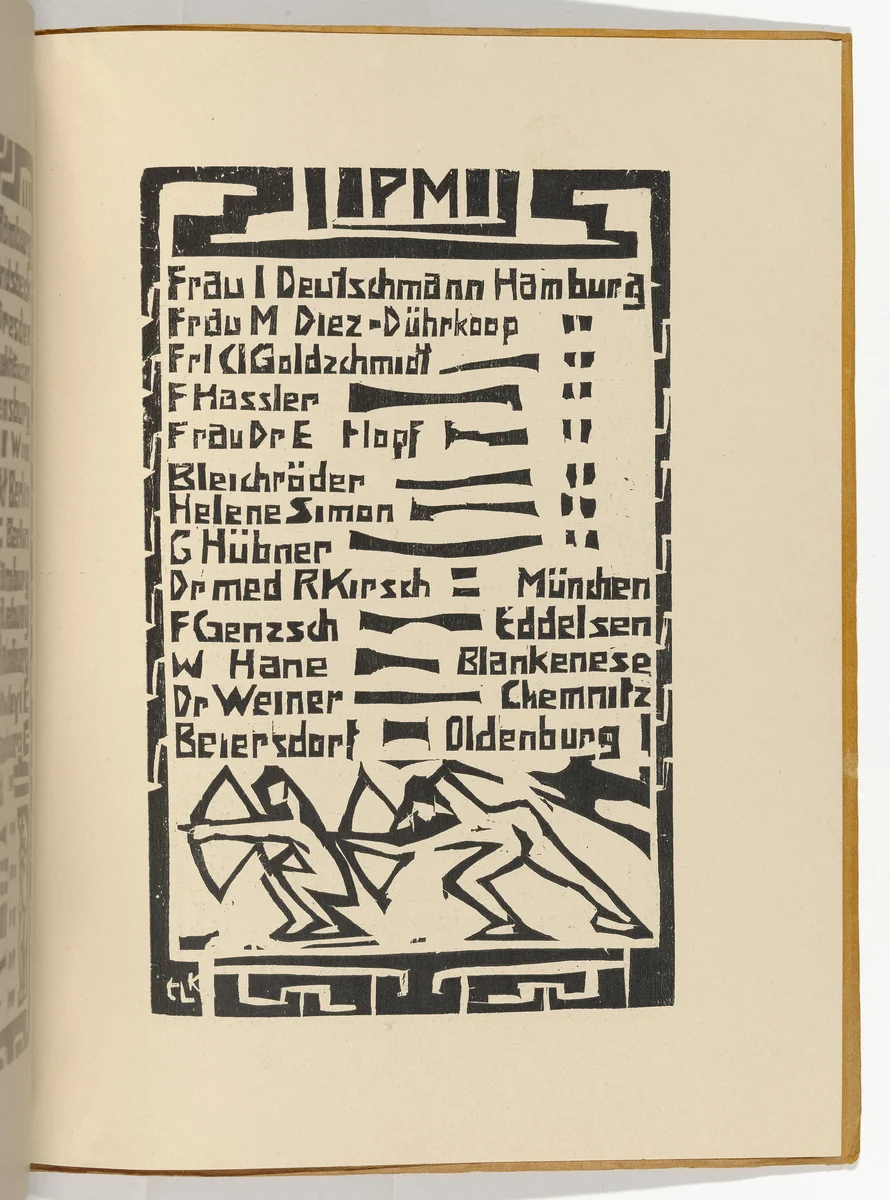 PM
Frau I Deutschmann Hamburg
Frau M Diez-Dührkoop "
Frl Cl Goldzchmidt "
F Hassler "
Frau Dr E Hopf "
Bleichröder "
Helene Simon "
G Hübner "
Dr med R Kirsch = München
F Genzsch Eddelsen
W Hane Blankenese
Dr Weiner Chemnitz
Beiersdorf Oldenburg
ELK